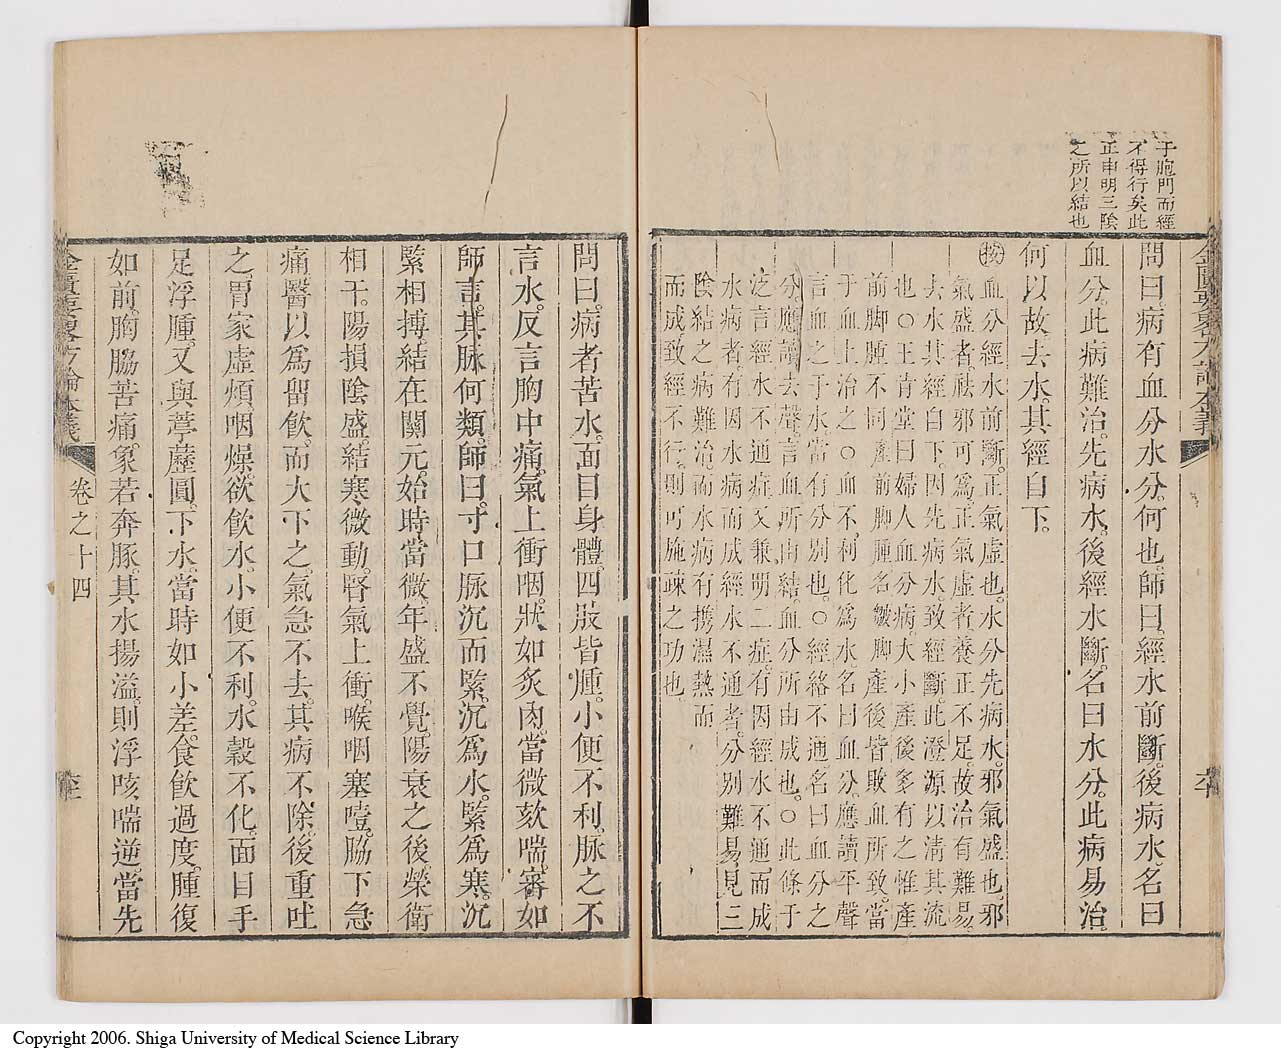 于胞門而經
不得行矣此
正申明三陰
之所以結也
問曰。病有血分水分。何也。師曰。經水前斷。後病水。名曰
血分。此病難治。先病水。後經水斷。名曰水分。此病易治。
何以故。去水。其經自下。
按血分經水前斷。正氣虛也。水分先病水。邪氣盛也。邪
氣盛者。祛邪可為。正氣虛者。養正不足。故治有難易。
去水其經自下。因先病水。致經斷。此澄源以清其流
也○王肯堂曰婦人血分病。大小產後多有之惟產
前脚腫不同產前脚腫名皺脚產後皆敗血所致。當
于血上治之。○血不利化爲水。名曰血分。應讀平聲
言血之于水當有分別也。○經絡不通名曰血分之
分。應讀去聲。言血所由結。血分所由成也。○此條于
泛言經水不通症又兼明二症。有因經水不通而成
水病者。有因水病而成經水不通者。分別難易。見三
陰結之病難治。而水病有携濕熱而
而成致經不行。則可施疎之功也。
金匱要畧方論本義
問曰。病者苦水。面目身體。四肢皆腫。小便不利。脉之不
言水。反言胸中痛。氣上衝咽。狀如炙肉。當微欬喘。審如
師言。其脉何類。師曰。寸口脉沉而緊。沉爲水。緊爲寒。沉
緊相摶。結在關元。始時當微。年盛不覺。陽衰之後。榮衛
相干。陽損陰盛。結寒微動。腎氣上衝。喉咽塞噎。脇下急
痛。醫以爲留飲。而大下之。氣急不去。其病不除。後重吐
之。胃家虛煩。咽燥欲飲水。小便不利。水穀不化。面目手
足浮腫。又與葶藶圓。下水。當時如小差。食飲過度。腫復
如前。胸脇苦痛。象若奔豚。其水揚溢。則浮咳喘逆。當先
金匱要畧方論本義
卷之十四
Copyright 2006. Shiga University of Medical Science Library